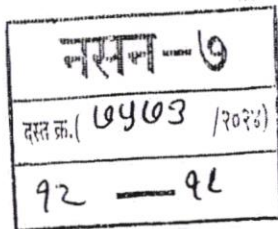 नसन-७
दस्त क्र.( ७५७३ /२०२४)
१२ — १८